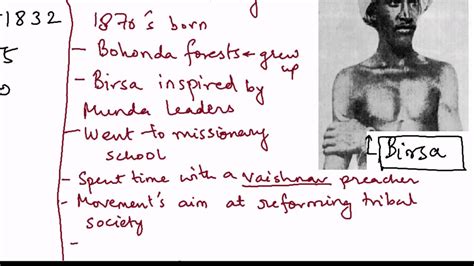 1832
5
1870's born
- Bohonda forests ← grew up
- Birsa inspired by
Munda leaders
- Went to missionary
school
- Spent time with a vaishnav preacher
- Movement's aim at reforming tribal
society
-
Birsa